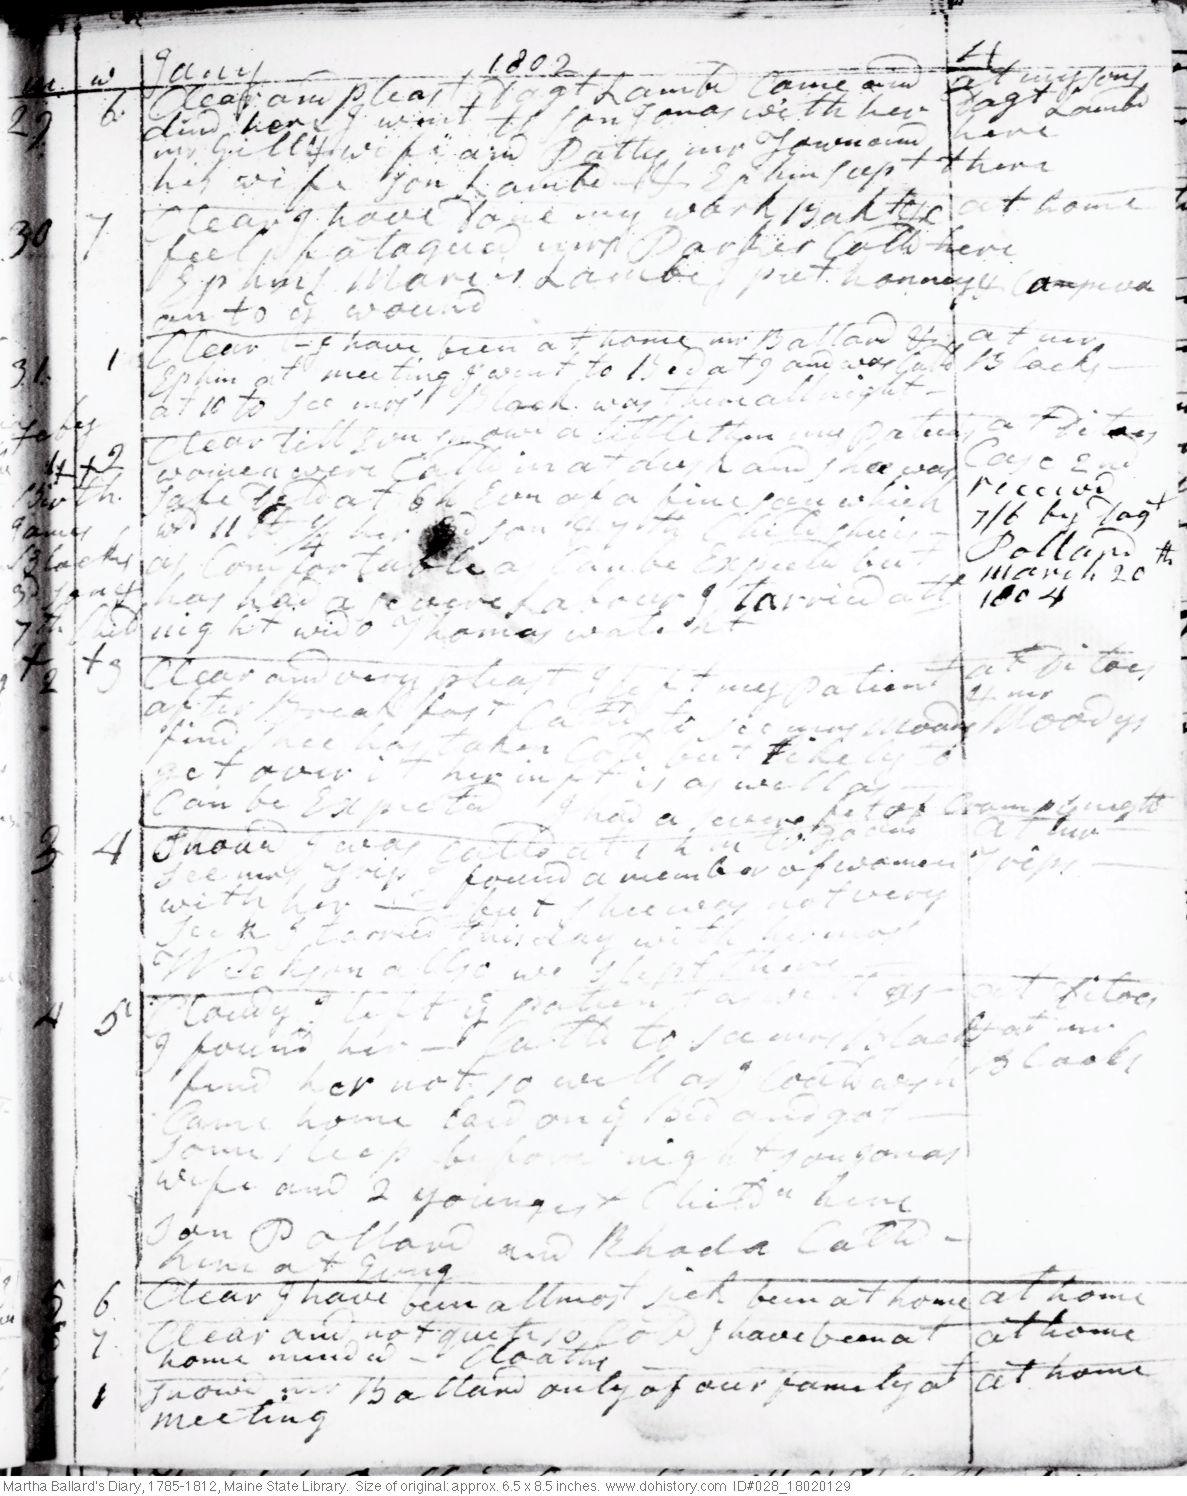 m w Jany 1802 H
29 6 Clear and pleast Dagt Lambd Came and at my sons
dind here I went to son Jonas with her Dagt Lambd
mr Gill & wife and Patty mr Townsend here
his wife son Lambd & Ephm sleept there
30 7 Clear I have done my work Bakt &c at home
feel fatagued mrs Parker Calld here
Ephms Lambd I put honney &
on to ye wound
31 1 Clear I have been at home mr Ballard & at mr
Ephm at meeting I went to Bed at 9 and was Calld Blacks
at 10 to see mrs Black was there all night
Feby
1 +2 Clear till Evn snowd a little then my patients at Ditoes
women were Calld in at dusk and shee was Case and
Birth. safe deld at 6h Evn of a fine son which receivd
James wd 11 lb 7/6 by Dagt
Blacks as Comfortable as Can be Expected but Pollard
3d son & has had a severe Labour I tarried all March 20th
7th Child night wido Thomas watcht 1804
+2 +3 Clear and very pleast I left my patient at Ditoes
after Breakfast Calld to see mrs Moody & mr Moodys
find shee has taken Cold but likely to
get over it her inft is as well as
Can be Expected I had a severe fit of Cramp
3 4 Snowd I was Calld at 1 h m to go and at mr
see mrs Trip I found a member of women Trips
with her but shee was not very
sick I tarried this day with her mrs
allso we slept there
4 5 Cloudy I left ye patient as wel as at Ditoes
I found her Calld to see mrs Black & at mr
find her not so well as I Could wish Blacks
Came home laid on ye Bed and got
some sleep before night son Jonas
wife and 2 youngest Childn here
son Pollard and Rhoda Calld
here at Evng
5 6 Clear I have been allmost sick been at home at home
7 Clear and not quite so Cold I have been at at home
home mended Cloaths
1 Snowd mr Ballard only of our family at at home
meeting
Martha Ballard's Diary, 1785-1812, Maine State Library. Size of original: approx. 6.5 x 8.5 inches. www.dohistory.com ID#028_18020129